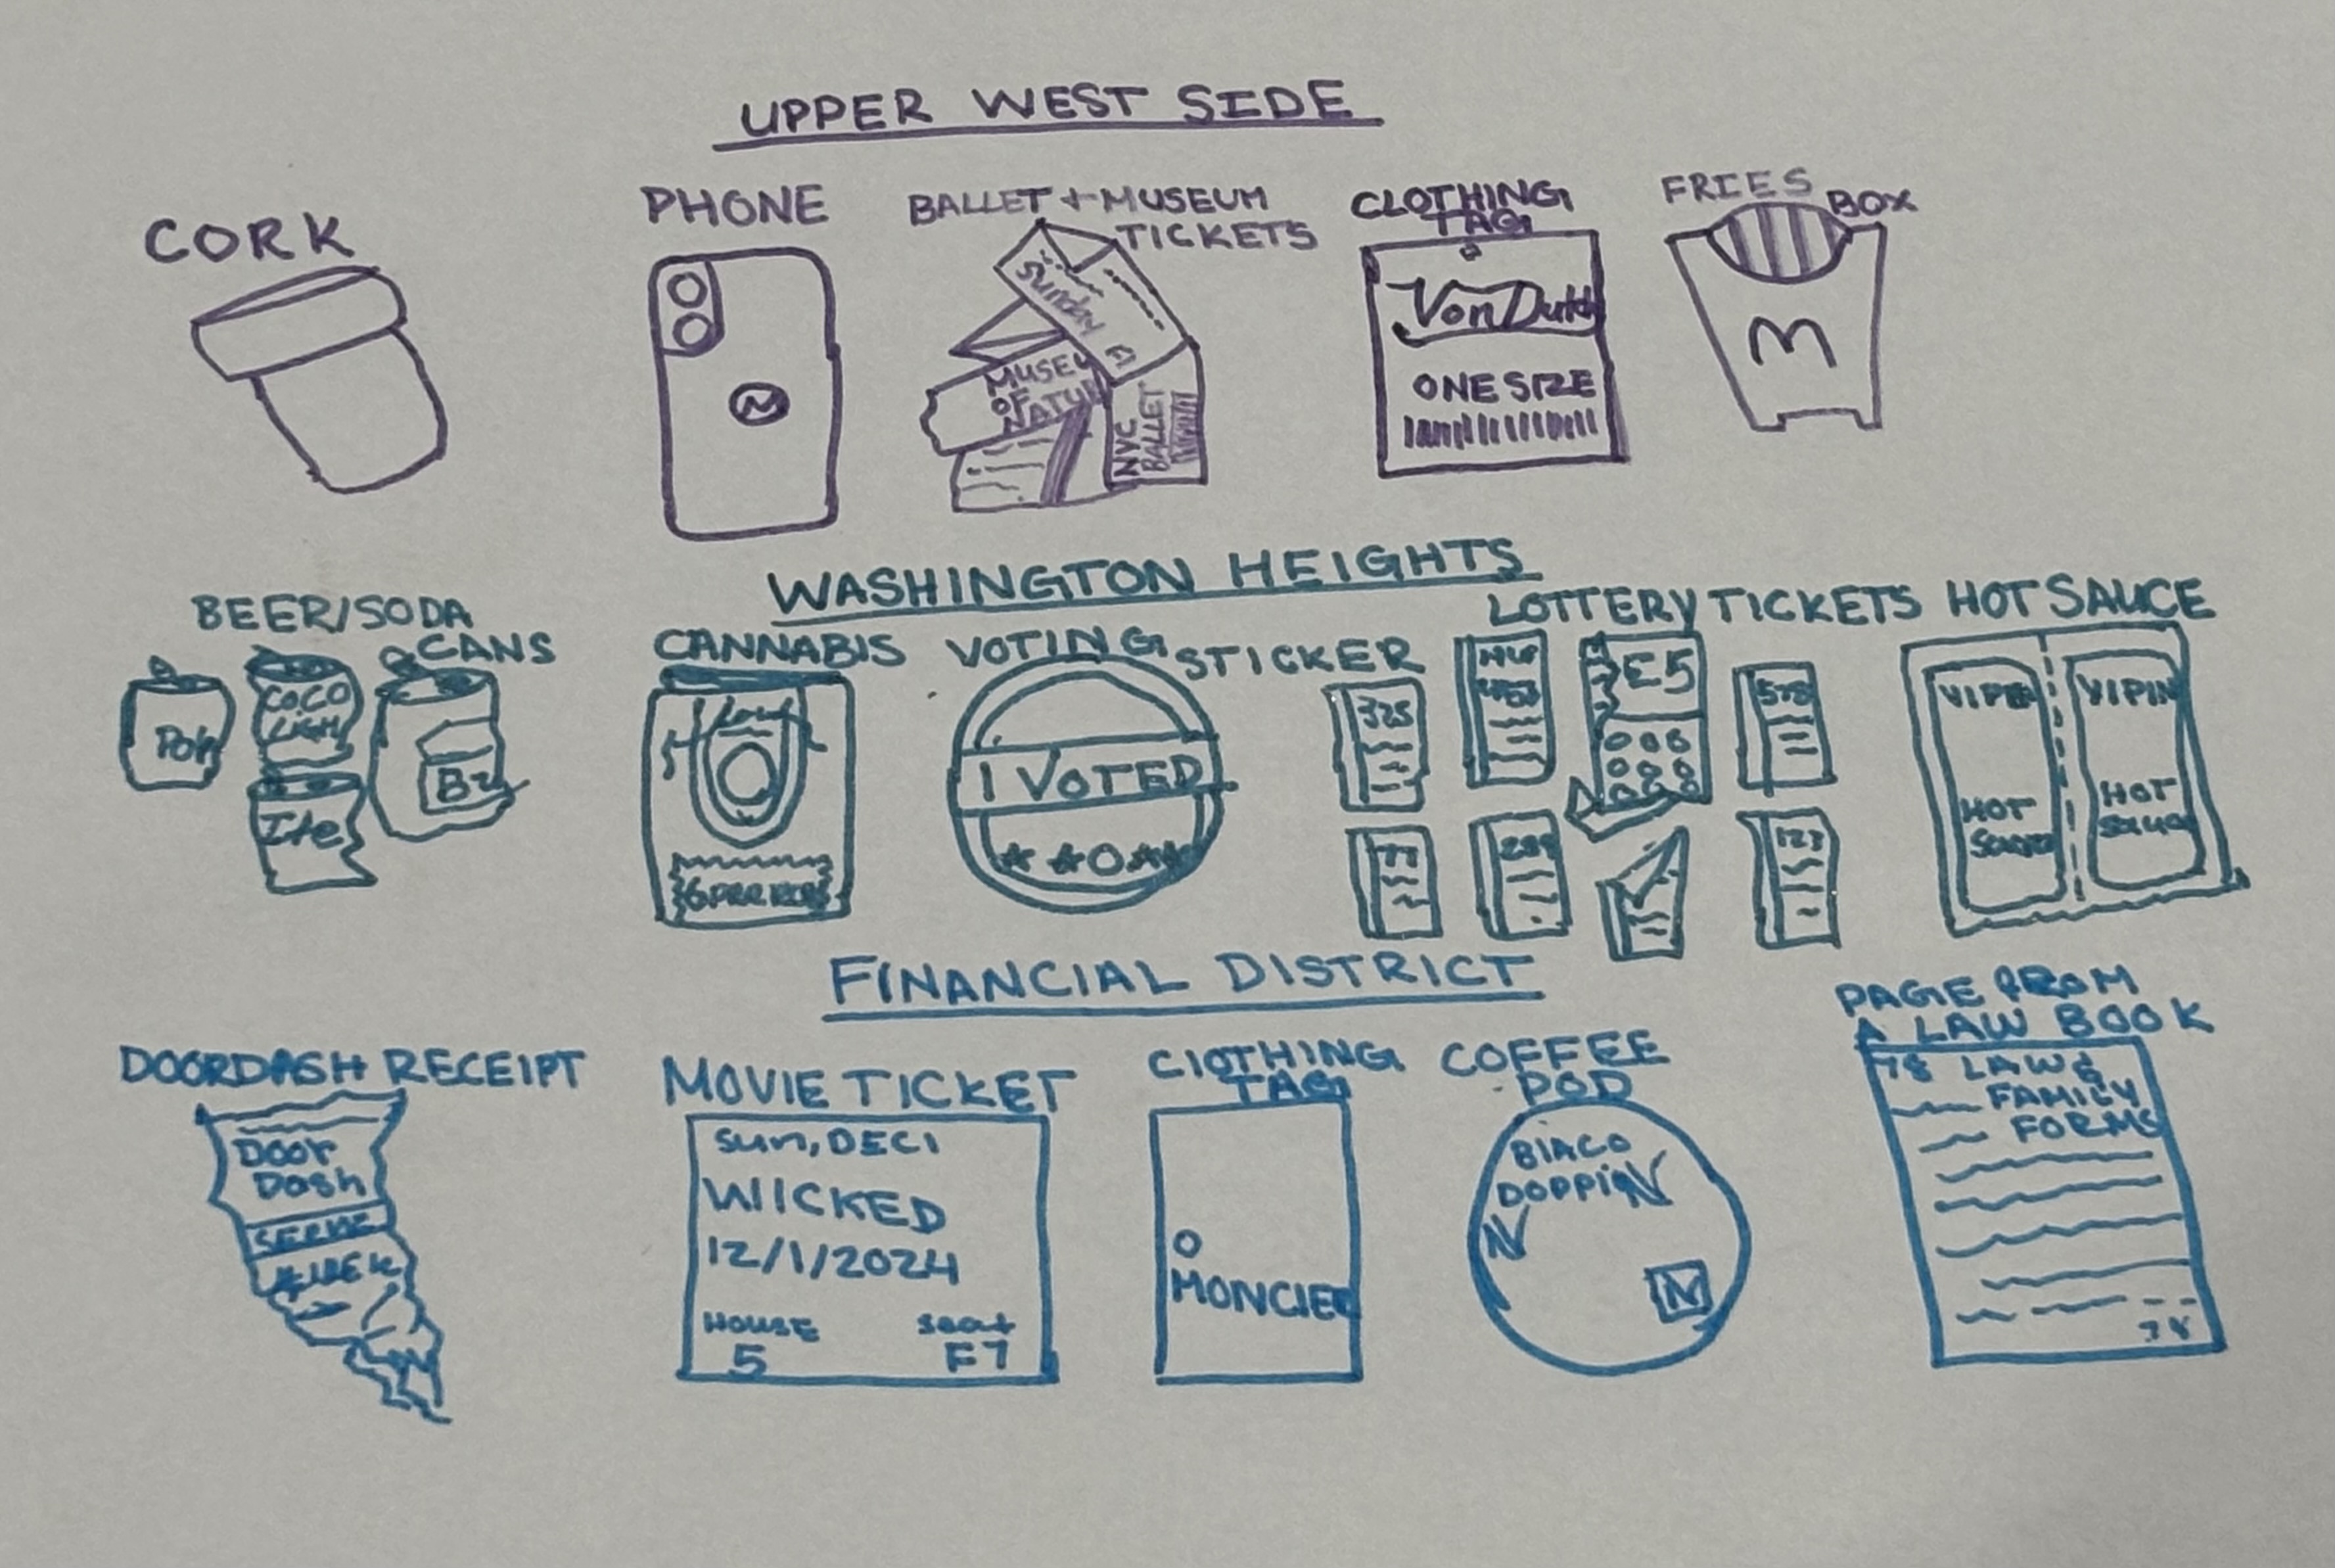 UPPER WEST SIDE
CORK
PHONE
BALLET + MUSEUM
TICKETS
CLOTHING
TAG
FRIES BOX
Sunday
MUSEU
OF
NATU
NYC
BALLET
Von Dutch
ONE SIZE
M
WASHINGTON HEIGHTS
BEER/SODA
CANS
CANNABIS
VOTING STICKER
LOTTERY TICKETS
HOT SAUCE
COCO
LIGH
Ite
I VOTED
325
E5
VIPIN
HOT
Sauce
VIPIN
HOT
Sauce
77
127
FINANCIAL DISTRICT
DOORDASH RECEIPT
Door
Dash
MOVIE TICKET
Sun, DEC 1
WICKED
12/1/2024
HOUSE
5
Seat
F7
CLOTHING
TAG
MONCLER
COFFEE
POD
BIACO
DOPPIO
N
N
PAGE FROM
A LAW BOOK
78 LAW &
FAMILY
FORMS
78